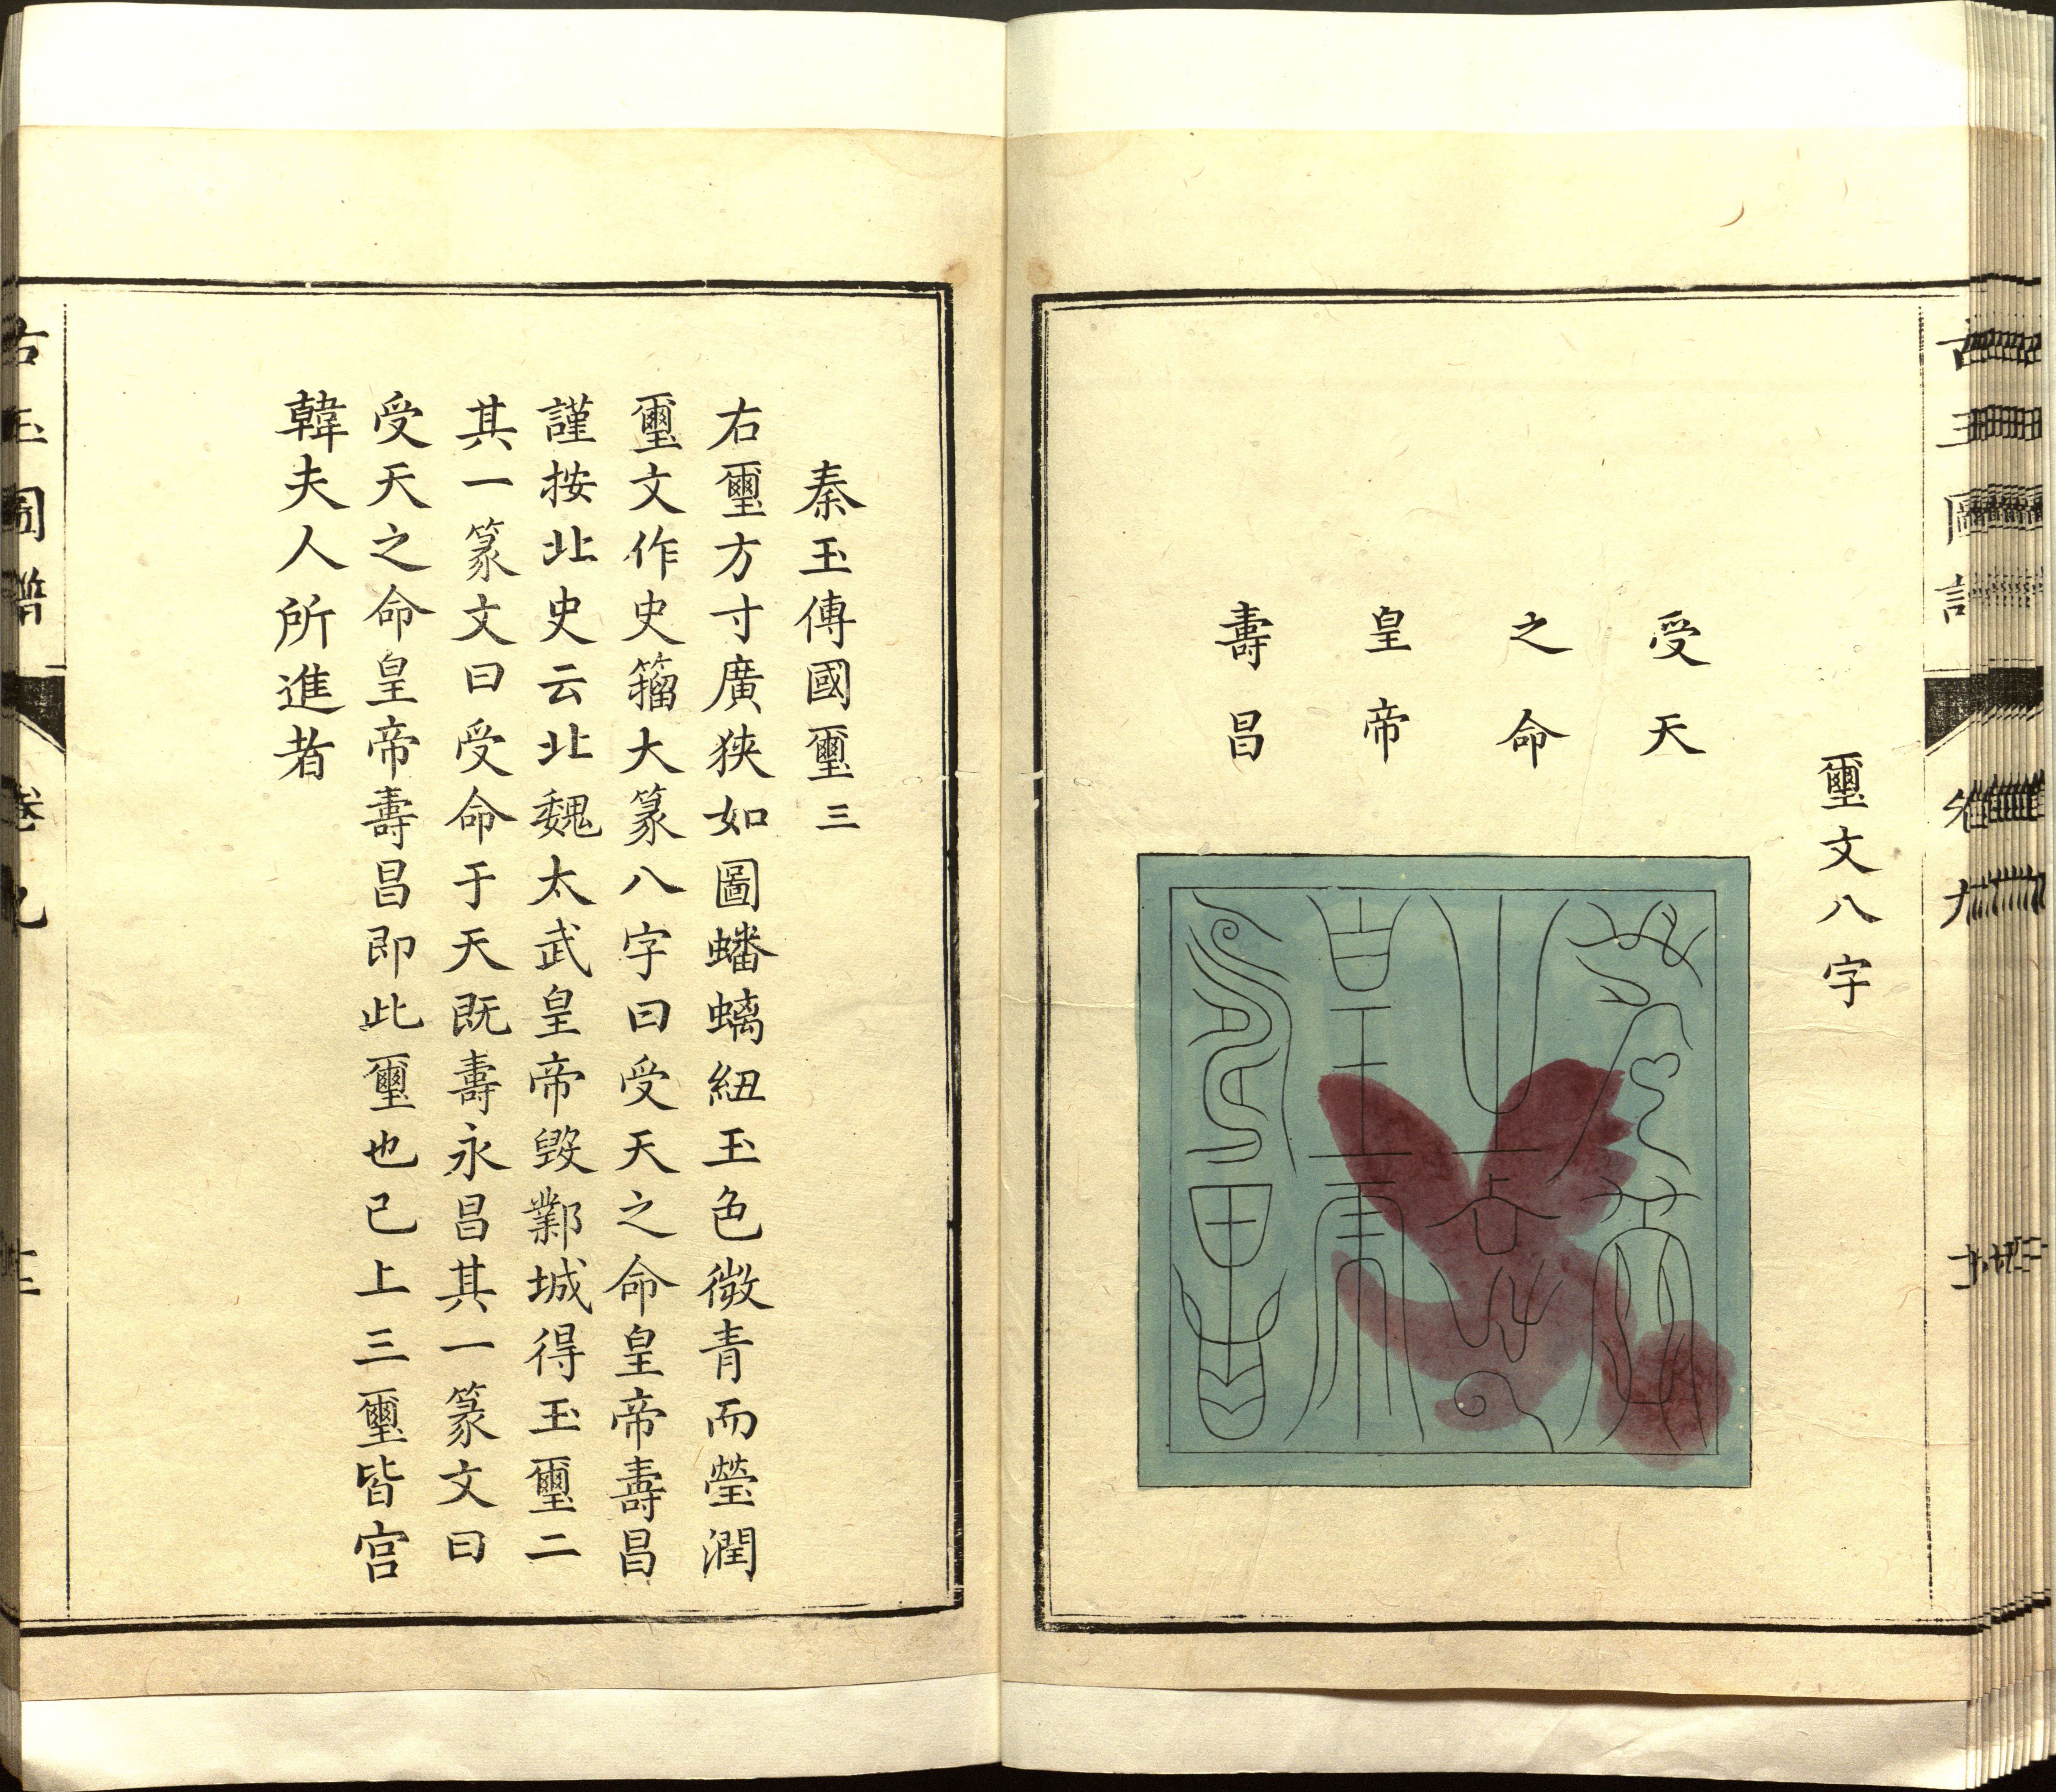 璽文八字
受天
之命
皇帝
壽昌
秦玉傳國璽三
右璽方寸廣狹如圖蟠螭紐玉色微青而瑩潤
璽文作史籀大篆八字曰受天之命皇帝壽昌
謹按北史云北魏太武皇帝毀鄴城得玉璽二
其一篆文曰受命于天既壽永昌其一篆文曰
受天之命皇帝壽昌即此璽也已上三璽皆宫
韓夫人所進者
古玉圖譜 卷九